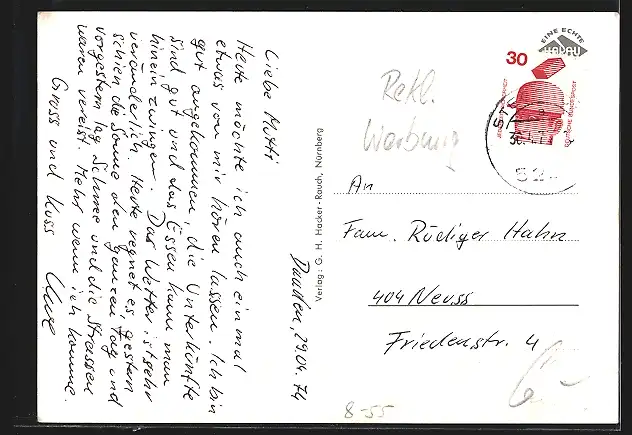 Dauden, 29.04.74
Liebe Mutti
Heute möchte ich auch einmal
etwas von mir hören lassen. Ich bin
gut angekommen, die Unterkünfte
sind gut und das Essen kann man
hinein zwingen. Das Wetter ist sehr
veränderlich. Heute regnet es, gestern
schien die Sonne den ganzen Tag und
vorgestern lag Schnee und die Strassen
waren vereist. Mehr wenn ich komme.
Gruss und Kuss
Verlag: G. H. Hacker-Rauch, Nürnberg
EINE ECHTE
30
DEUTSCHE BUNDESPOST
Rekl.
Werbung
An
Fam. Rüdiger Hahn
404 Neuss
Friedenstr. 4
8-55